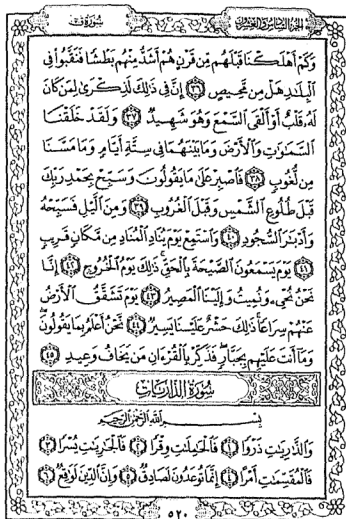 الجزء السادس والعشرون
سورة ق
وَكَمْ أَهْلَكْنَا قَبْلَهُم مِّن قَرْنٍ هُمْ أَشَدُّ مِنْهُم بَطْشًا فَنَقَّبُوا۟ فِى
ٱلْبِلَٰدِ هَلْ مِن مَّحِيصٍ ۝٣٦ إِنَّ فِى ذَٰلِكَ لَذِكْرَىٰ لِمَن كَانَ
لَهُۥ قَلْبٌ أَوْ أَلْقَى ٱلسَّمْعَ وَهُوَ شَهِيدٌ ۝٣٧ وَلَقَدْ خَلَقْنَا
ٱلسَّمَٰوَٰتِ وَٱلْأَرْضَ وَمَا بَيْنَهُمَا فِى سِتَّةِ أَيَّامٍ وَمَا مَسَّنَا
مِن لُّغُوبٍ ۝٣٨ فَٱصْبِرْ عَلَىٰ مَا يَقُولُونَ وَسَبِّحْ بِحَمْدِ رَبِّكَ
قَبْلَ طُلُوعِ ٱلشَّمْسِ وَقَبْلَ ٱلْغُرُوبِ ۝٣٩ وَمِنَ ٱلَّيْلِ فَسَبِّحْهُ
وَأَدْبَٰرَ ٱلسُّجُودِ ۝٤٠ وَٱسْتَمِعْ يَوْمَ يُنَادِ ٱلْمُنَادِ مِن مَّكَانٍ قَرِيبٍ
۝٤١ يَوْمَ يَسْمَعُونَ ٱلصَّيْحَةَ بِٱلْحَقِّ ۚ ذَٰلِكَ يَوْمُ ٱلْخُرُوجِ ۝٤٢ إِنَّا
نَحْنُ نُحْىِۦ وَنُمِيتُ وَإِلَيْنَا ٱلْمَصِيرُ ۝٤٣ يَوْمَ تَشَقَّقُ ٱلْأَرْضُ
عَنْهُمْ سِرَاعًا ۚ ذَٰلِكَ حَشْرٌ عَلَيْنَا يَسِيرٌ ۝٤٤ نَّحْنُ أَعْلَمُ بِمَا يَقُولُونَ ۖ
وَمَآ أَنتَ عَلَيْهِم بِجَبَّارٍ ۖ فَذَكِّرْ بِٱلْقُرْءَانِ مَن يَخَافُ وَعِيدِ ۝٤٥
سورة الذاريات
بِسْمِ ٱللَّهِ ٱلرَّحْمَٰنِ ٱلرَّحِيمِ
وَٱلذَّٰرِيَٰتِ ذَرْوًا ۝١ فَٱلْحَٰمِلَٰتِ وِقْرًا ۝٢ فَٱلْجَٰرِيَٰتِ يُسْرًا ۝٣
فَٱلْمُقَسِّمَٰتِ أَمْرًا ۝٤ إِنَّمَا تُوعَدُونَ لَصَادِقٌ ۝٥ وَإِنَّ ٱلدِّينَ لَوَٰقِعٌ ۝٦
٥٢٠